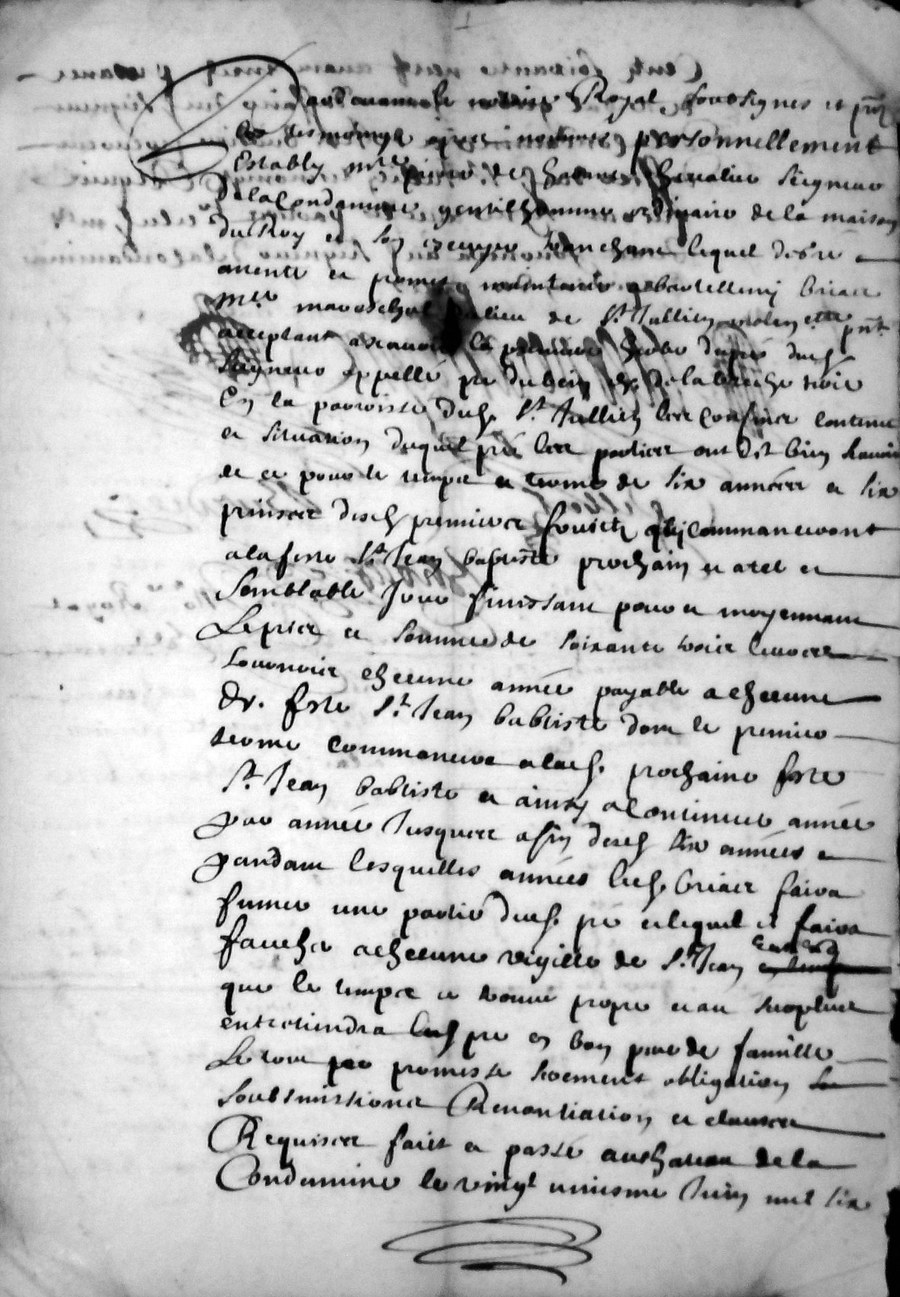 Pardevant le notaire Royal soubsignes et pnt
les tesmoingz apres nommes personnellement
Estably mre de Chevalier Seigneur
De la Condamine gentilhomme ordinaire de la maison
du Roy et son escuyer tranchant lequel de gre
arrente et promis maintenir a bartellemy briair
mre mareschal du lieu de St Jullien pnt
acceptant a scavoir la premiere herbe du pre dud
Seigneur appellé pre de la noir
En la parroisse dud St Jullien les confins contenue
et situation duquel pré les parties ont dit bien scavoir
et ce pour le temps et terme de six années et six
prinses desd premiers fruictz qui commanceront
a la feste St Jean baptiste prochain et a tel et
Semblable Jour finissant pour et moyennant
Le pris et somme de soixante trois livres
tournois chacune année payable a chacune
de feste St Jean babtiste dont le premier
terme commancera a lad prochaine feste
St Jean babtiste et ainsy a continuer année
par année Jusques a fin desd six années et
pandant lesquelles années led briair faira
fumer une partie dud pré et lequel il faira
faucher a chacune vigille de St Jean
que le temps ce trouve propre et au surplus
entretiendra led pre en bon pere de famille
Le tout par promesse serment obligation
soubsmissions Renontiation et clauses
Requises fait et passé au chateau de la
Condamine le vingt uniesme Juin mil six